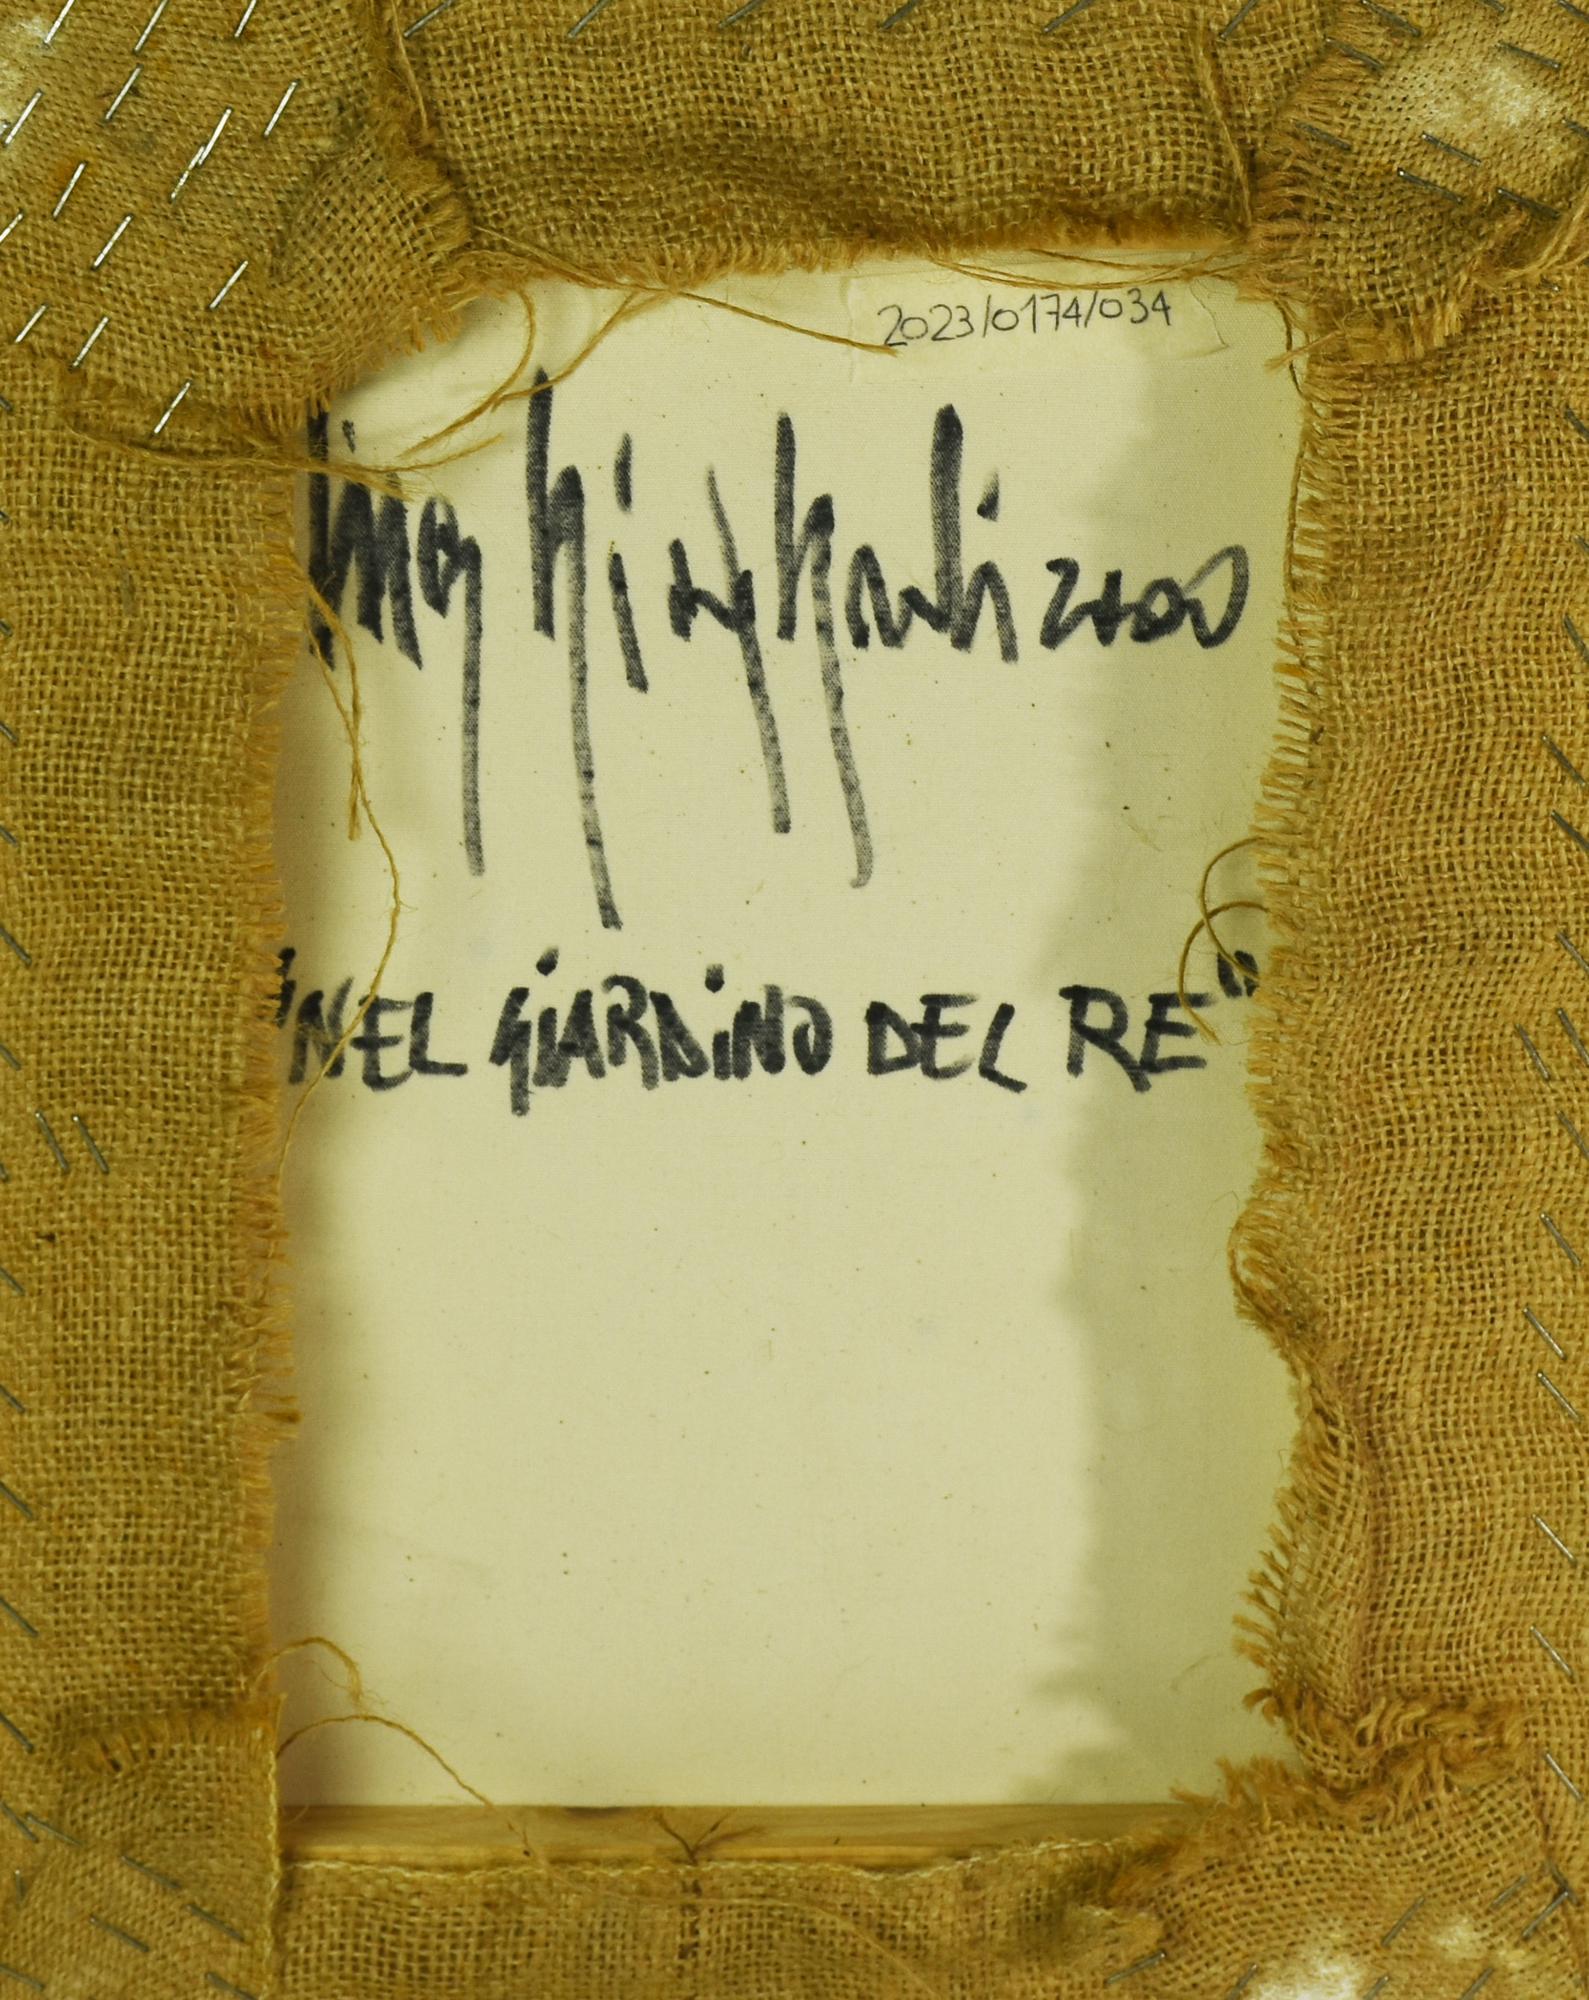 2023/0174/034
2000
"NEL GIARDINO DEL RE"